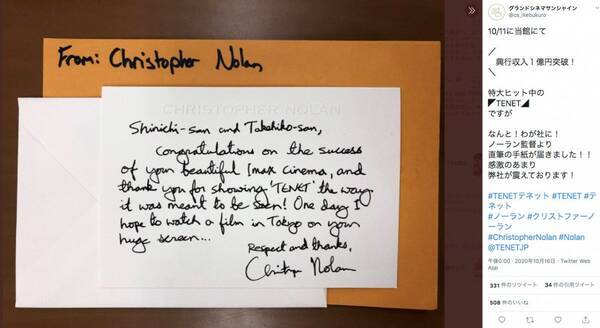 From: Christopher Nolan
CHRISTOPHER NOLAN
Shinichi-san and Takehiko-san,
Congratulations on the success
of your beautiful Imax cinema, and
thank you for showing 'TENET' the way
it was meant to be seen! One day I
hope to watch a film in Tokyo on your
huge screen...
Respect and thanks,
Christopher Nolan
グランドシネマサンシャイン
@cs_ikebukuro
10/11に当館にて
／
興行収入1億円突破！
＼
特大ヒット中の
◤TENET◢
ですが
なんと！わが社に！
ノーラン監督より
直筆の手紙が届きました！！
感激のあまり
弊社が震えております！
#TENETテネット #TENET #テ
ネット
#ノーラン #クリストファーノ
ーラン
#ChristopherNolan #Nolan
@TENETJP
午後0:00 · 2020年10月16日 · Twitter Web
App
331 件のリツイート 34 件の引用ツイート
508 件のいいね